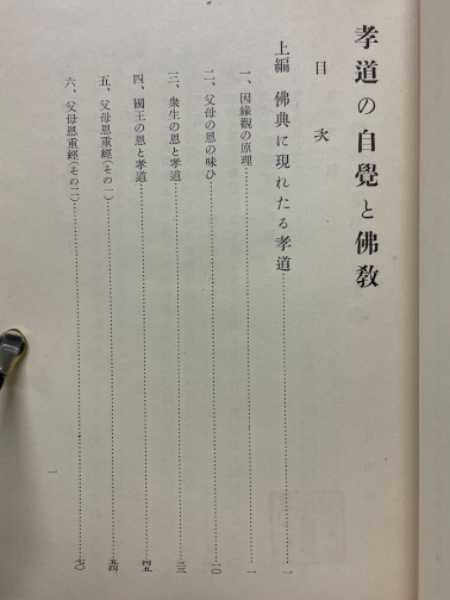 孝道の自覺と佛敎
目次
上編 佛典に現れたる孝道……一
一、因緣觀の原理……一
二、父母の恩の味ひ……一〇
三、衆生の恩と孝道……三三
四、國王の恩と孝道……四五
五、父母恩重經(その一)……五四
六、父母恩重經(その二)……六〇
一